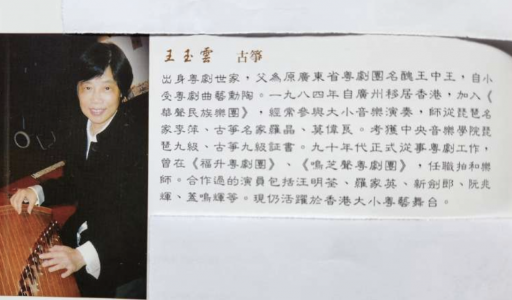 王玉雲 古箏
出身粵劇世家，父為原廣東省粵劇團名醜王中王，自小
受粵劇曲藝勳陶。一九八四年自廣州移居香港，加入《
華聲民族樂團》，經常參與大小音樂演奏，師從琵琶名
家李萍、古箏名家羅晶、莫偉良。考獲中央音樂學院琵
琶九級、古箏九級証書。九十年代正式從事粵劇工作，
曾在《福升粵劇團》、《鳴芝聲粵劇團》，任職拍和樂
師。合作過的演員包括汪明荃、羅家英、新劍郎、阮兆
輝、蓋鳴暉等。現仍活躍於香港大小粵藝舞台。